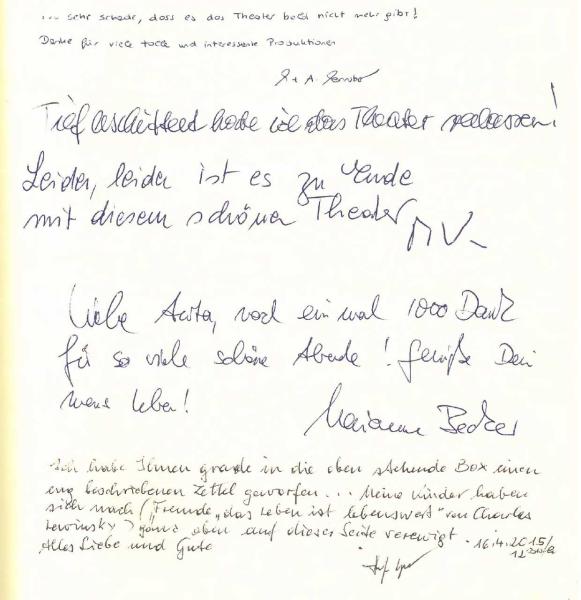 ... sehr schade, dass es das Theater bald nicht mehr gibt!
Danke für viele tolle und interessante Produktionen
Tief erschüttert habe ich das Theater verlassen!
Leider, leider ist es zu Ende
mit diesem schönen Theater
MV.
Liebe Anita, noch ein mal 1000 Dank
für so viele schöne Abende! Genieße Dein
neues Leben!
Marianne Becker
Ich habe Ihnen grade in die oben stehende Box einen
eng beschriebenen Zettel geworfen... Meine Kinder haben
sich nach ("Freunde, das Leben ist lebenswert" von Charles
Lewinsky) ganz oben auf dieser Seite verewigt. 16.4.2015/
Alles Liebe und Gute